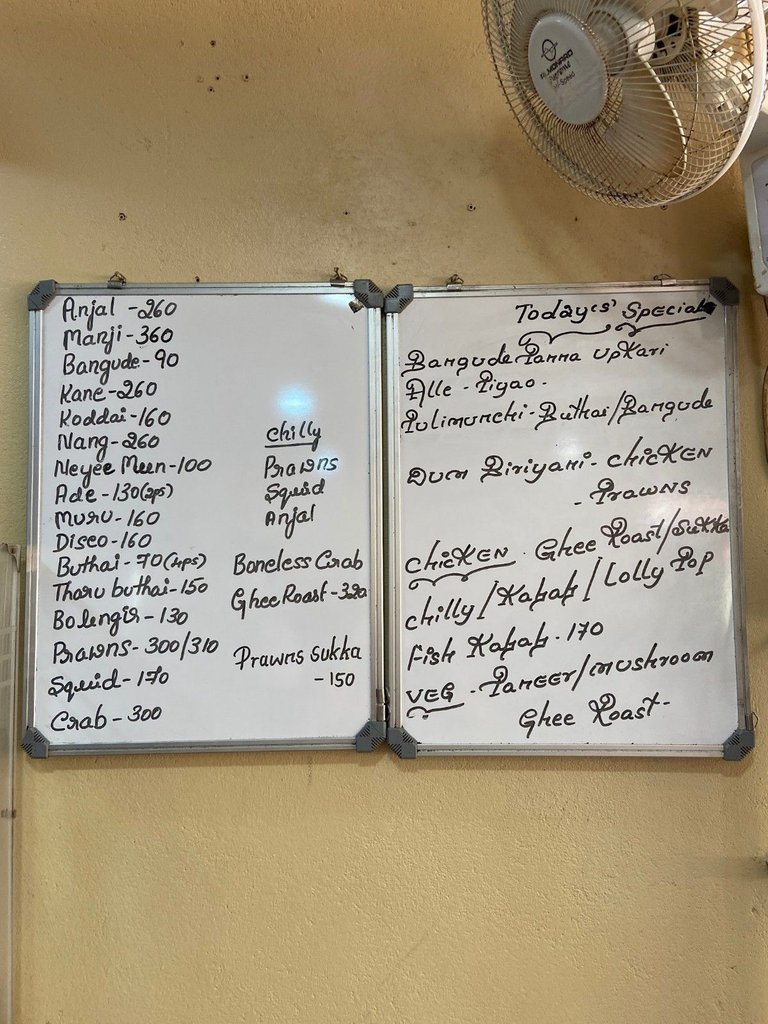 Anjal - 260
Manji - 360
Bangude - 90
Kane - 260
Koddai - 160
Nang - 260
Neyee Meen - 100
Ade - 130 (2ps)
Muru - 160
Disco - 160
Buthai - 70 (4ps)
Tharu buthai - 150
Bolengir - 130
Prawns - 300/310
Squid - 170
Crab - 300
chilly
Prawns
Squid
Anjal
Boneless Crab
Ghee Roast - 320
Prawns Sukka
- 150
Today(s' Special
Bangude Panna upkari
Alle - Piyao -
Pulimunchi - Buthai/Bangude
Dum Biriyani - chicken
- Prawns
chicken - Ghee Roast/Sukka
chilly/Kabab/Lolly Pop
Fish Kabab - 170
VEG - Paneer/mushroom
Ghee Roast -